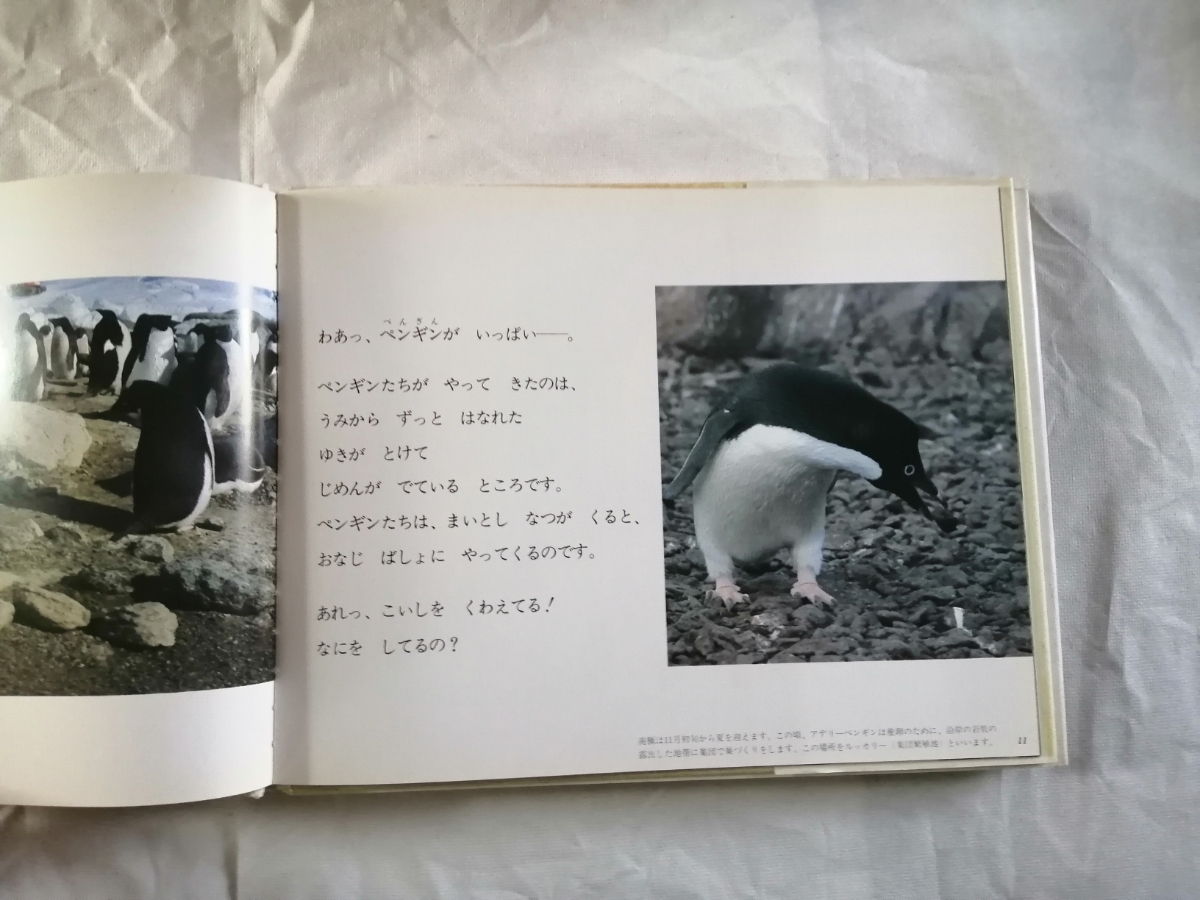 ぺんぎん
わあっ、ペンギンが　いっぱい――。
ペンギンたちが　やって　きたのは、
うみから　ずっと　はなれた
ゆきが　とけて
じめんが　でている　ところです。
ペンギンたちは、まいとし　なつが　くると、
おなじ　ばしょに　やってくるのです。
あれっ、こいしを　くわえてる！
なにを　してるの？
南極は11月初旬から夏を迎えます。この頃、アデリーペンギンは産卵のために、沿岸の岩肌の
露出した地帯に集団で巣づくりをします。この場所をルッカリー（集団繁殖地）といいます。
11